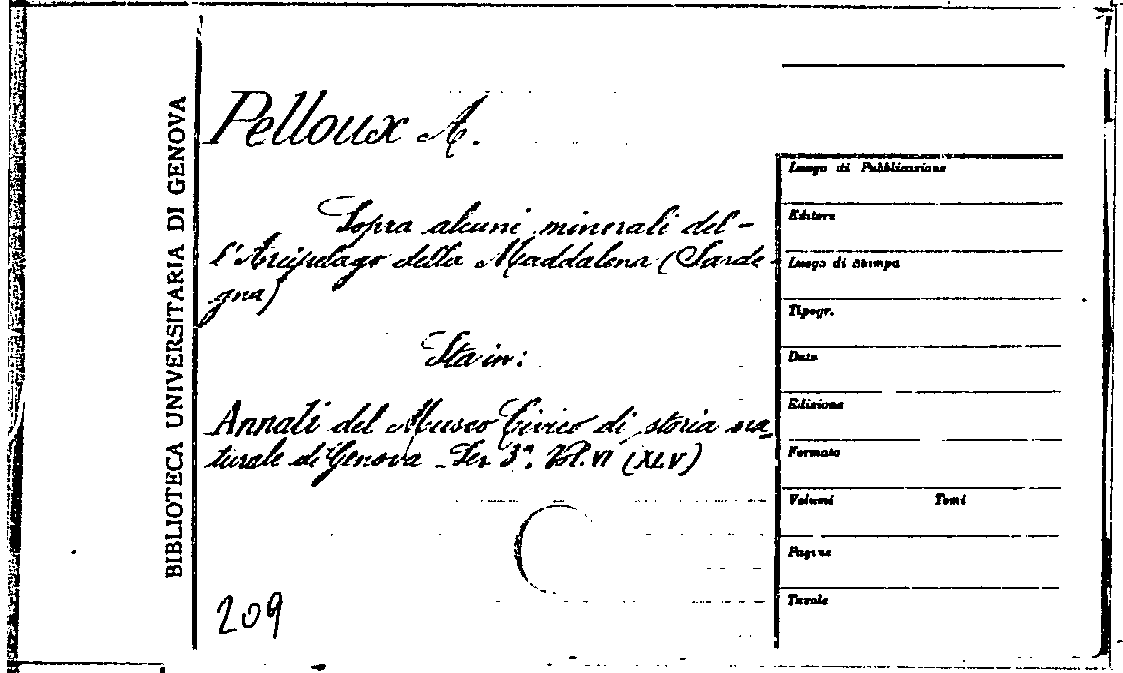 BIBLIOTECA UNIVERSITARIA DI GENOVA
Pelloux A.
Sopra alcuni minerali del-
l'Arcipelago della Maddalena (Sarde-
gna)
Sta in:
Annali del Museo Civico di storia na-
turale di Genova Ser 3ª. Vol. VI (XLV)
209
Luogo di Pubblicazione
Editore
Luogo di Stampa
Tipogr.
Data
Edizione
Formato
Volumi Tomi
Pagine
Tavole